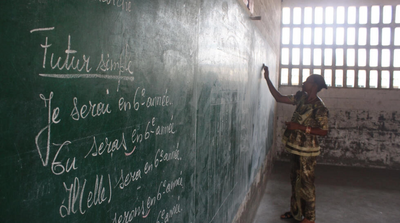 Futur simple
Je serai en 6e année.
Tu seras en 6e année
Il/Elle sera en 6e année.
serons en 6e